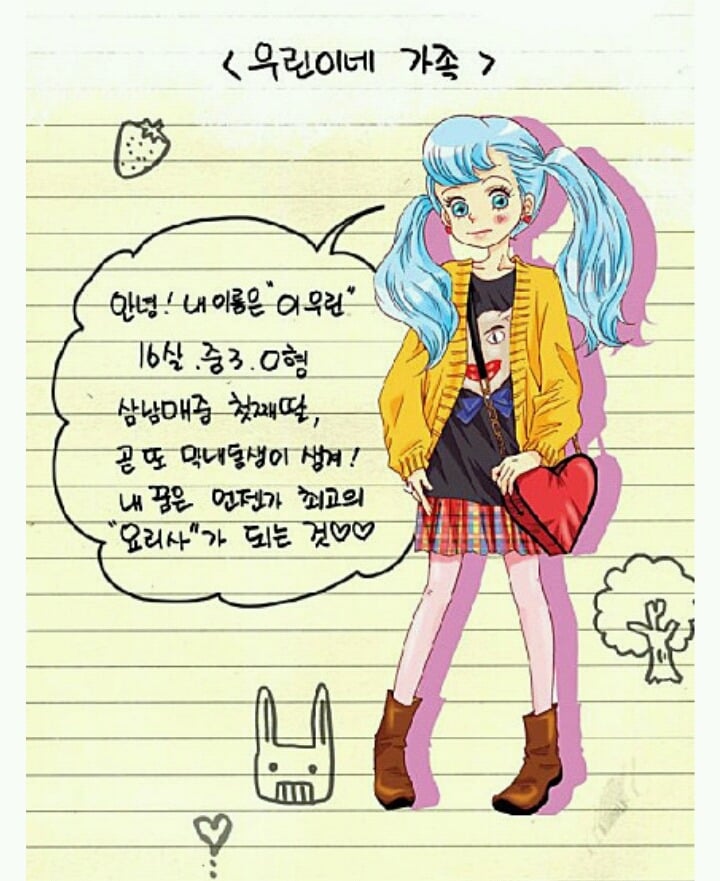 < 우린이네 가족 >
안녕! 내 이름은 "이우린"
16살. 중3. O형
삼남매중 첫째딸,
곧 또 막내동생이 생겨!
내 꿈은 언젠가 최고의
"요리사"가 되는 것♡♡